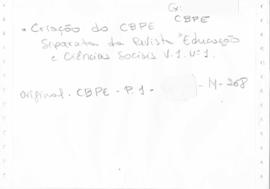 Cx:
CBPE
• Criação do CBPE
Separata da Revista "Educação
e Ciências Sociais V.1. Nº1.
Original - CBPE - P. 1 - - M - 268